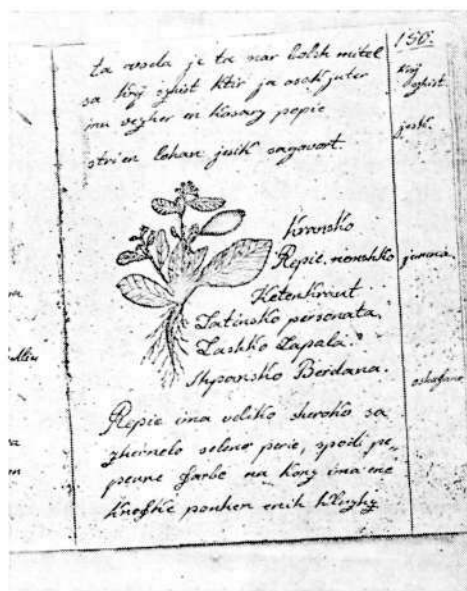 150.
ta voda je ta nar bolsh mitel
sa Kry zhist ktir ja usak juter
inu vezher en Kosarz popie
stri en lohan jesik sagovort.
Kry
zhist.
jesik.
Kransko
Repie. nemshko
Ketenkraut
Latinsko personata.
Lashko Lapala.
Shpansko Berdana.
Repie ima veliko sheroko sa
zhernelo seleno perie, spodi pe,,
peune farbe na konz ima ene
Knofke pouhen enih kluzhz